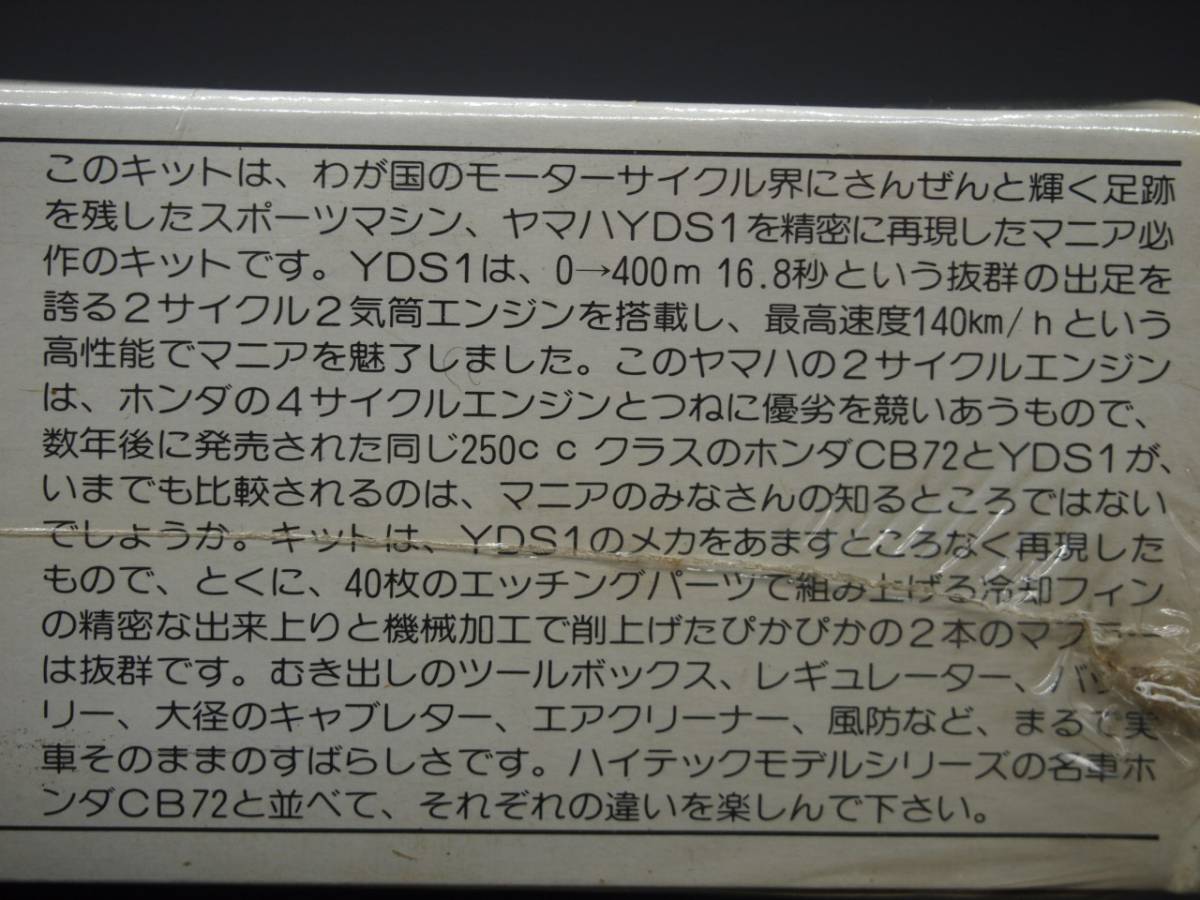 このキットは、わが国のモーターサイクル界にさんぜんと輝く足跡
を残したスポーツマシン、ヤマハYDS1を精密に再現したマニア必
作のキットです。YDS1は、0→400m 16.8秒という抜群の出足を
誇る2サイクル2気筒エンジンを搭載し、最高速度140km/hという
高性能でマニアを魅了しました。このヤマハの2サイクルエンジン
は、ホンダの4サイクルエンジンとつねに優劣を競いあうもので、
数年後に発売された同じ250cc クラスのホンダCB72とYDS1が、
いまでも比較されるのは、マニアのみなさんの知るところではない
でしょうか。キットは、YDS1のメカをあますところなく再現した
もので、とくに、40枚のエッチングパーツで組み上げる冷却フィン
の精密な出来上りと機械加工で削上げたぴかぴかの2本のマフラー
は抜群です。むき出しのツールボックス、レギュレーター、バッ
リー、大径のキャブレター、エアクリーナー、風防など、まるで実
車そのままのすばらしさです。ハイテックモデルシリーズの名車ホ
ンダCB72と並べて、それぞれの違いを楽しんで下さい。